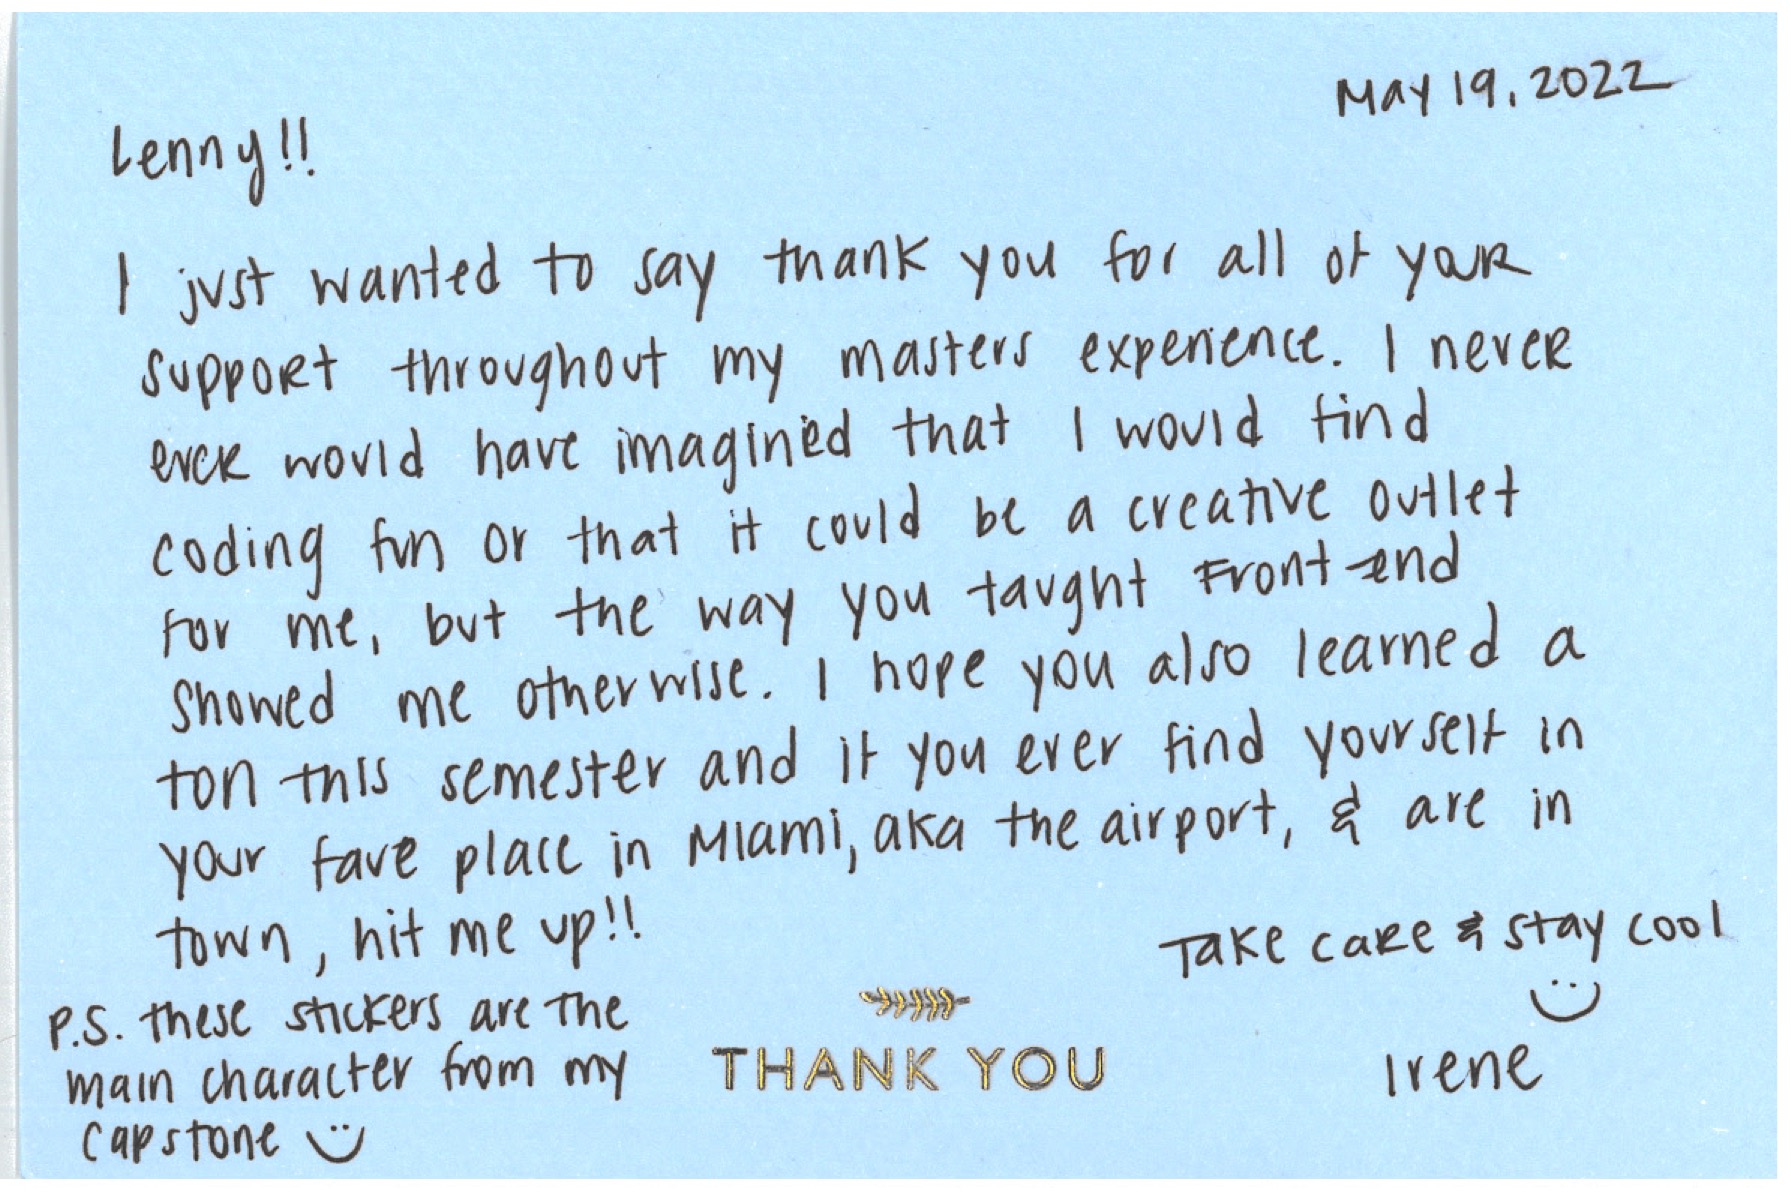 May 19, 2022
Lenny!!
I just wanted to say thank you for all of your
support throughout my masters experience. I never
ever would have imagined that I would find
coding fun or that it could be a creative outlet
for me, but the way you taught Front-end
showed me otherwise. I hope you also learned a
ton this semester and if you ever find yourself in
your fave place in Miami, aka the airport, & are in
town, hit me up!!
Take care & stay cool
Irene
P.S. these stickers are the
main character from my
capstone
THANK YOU